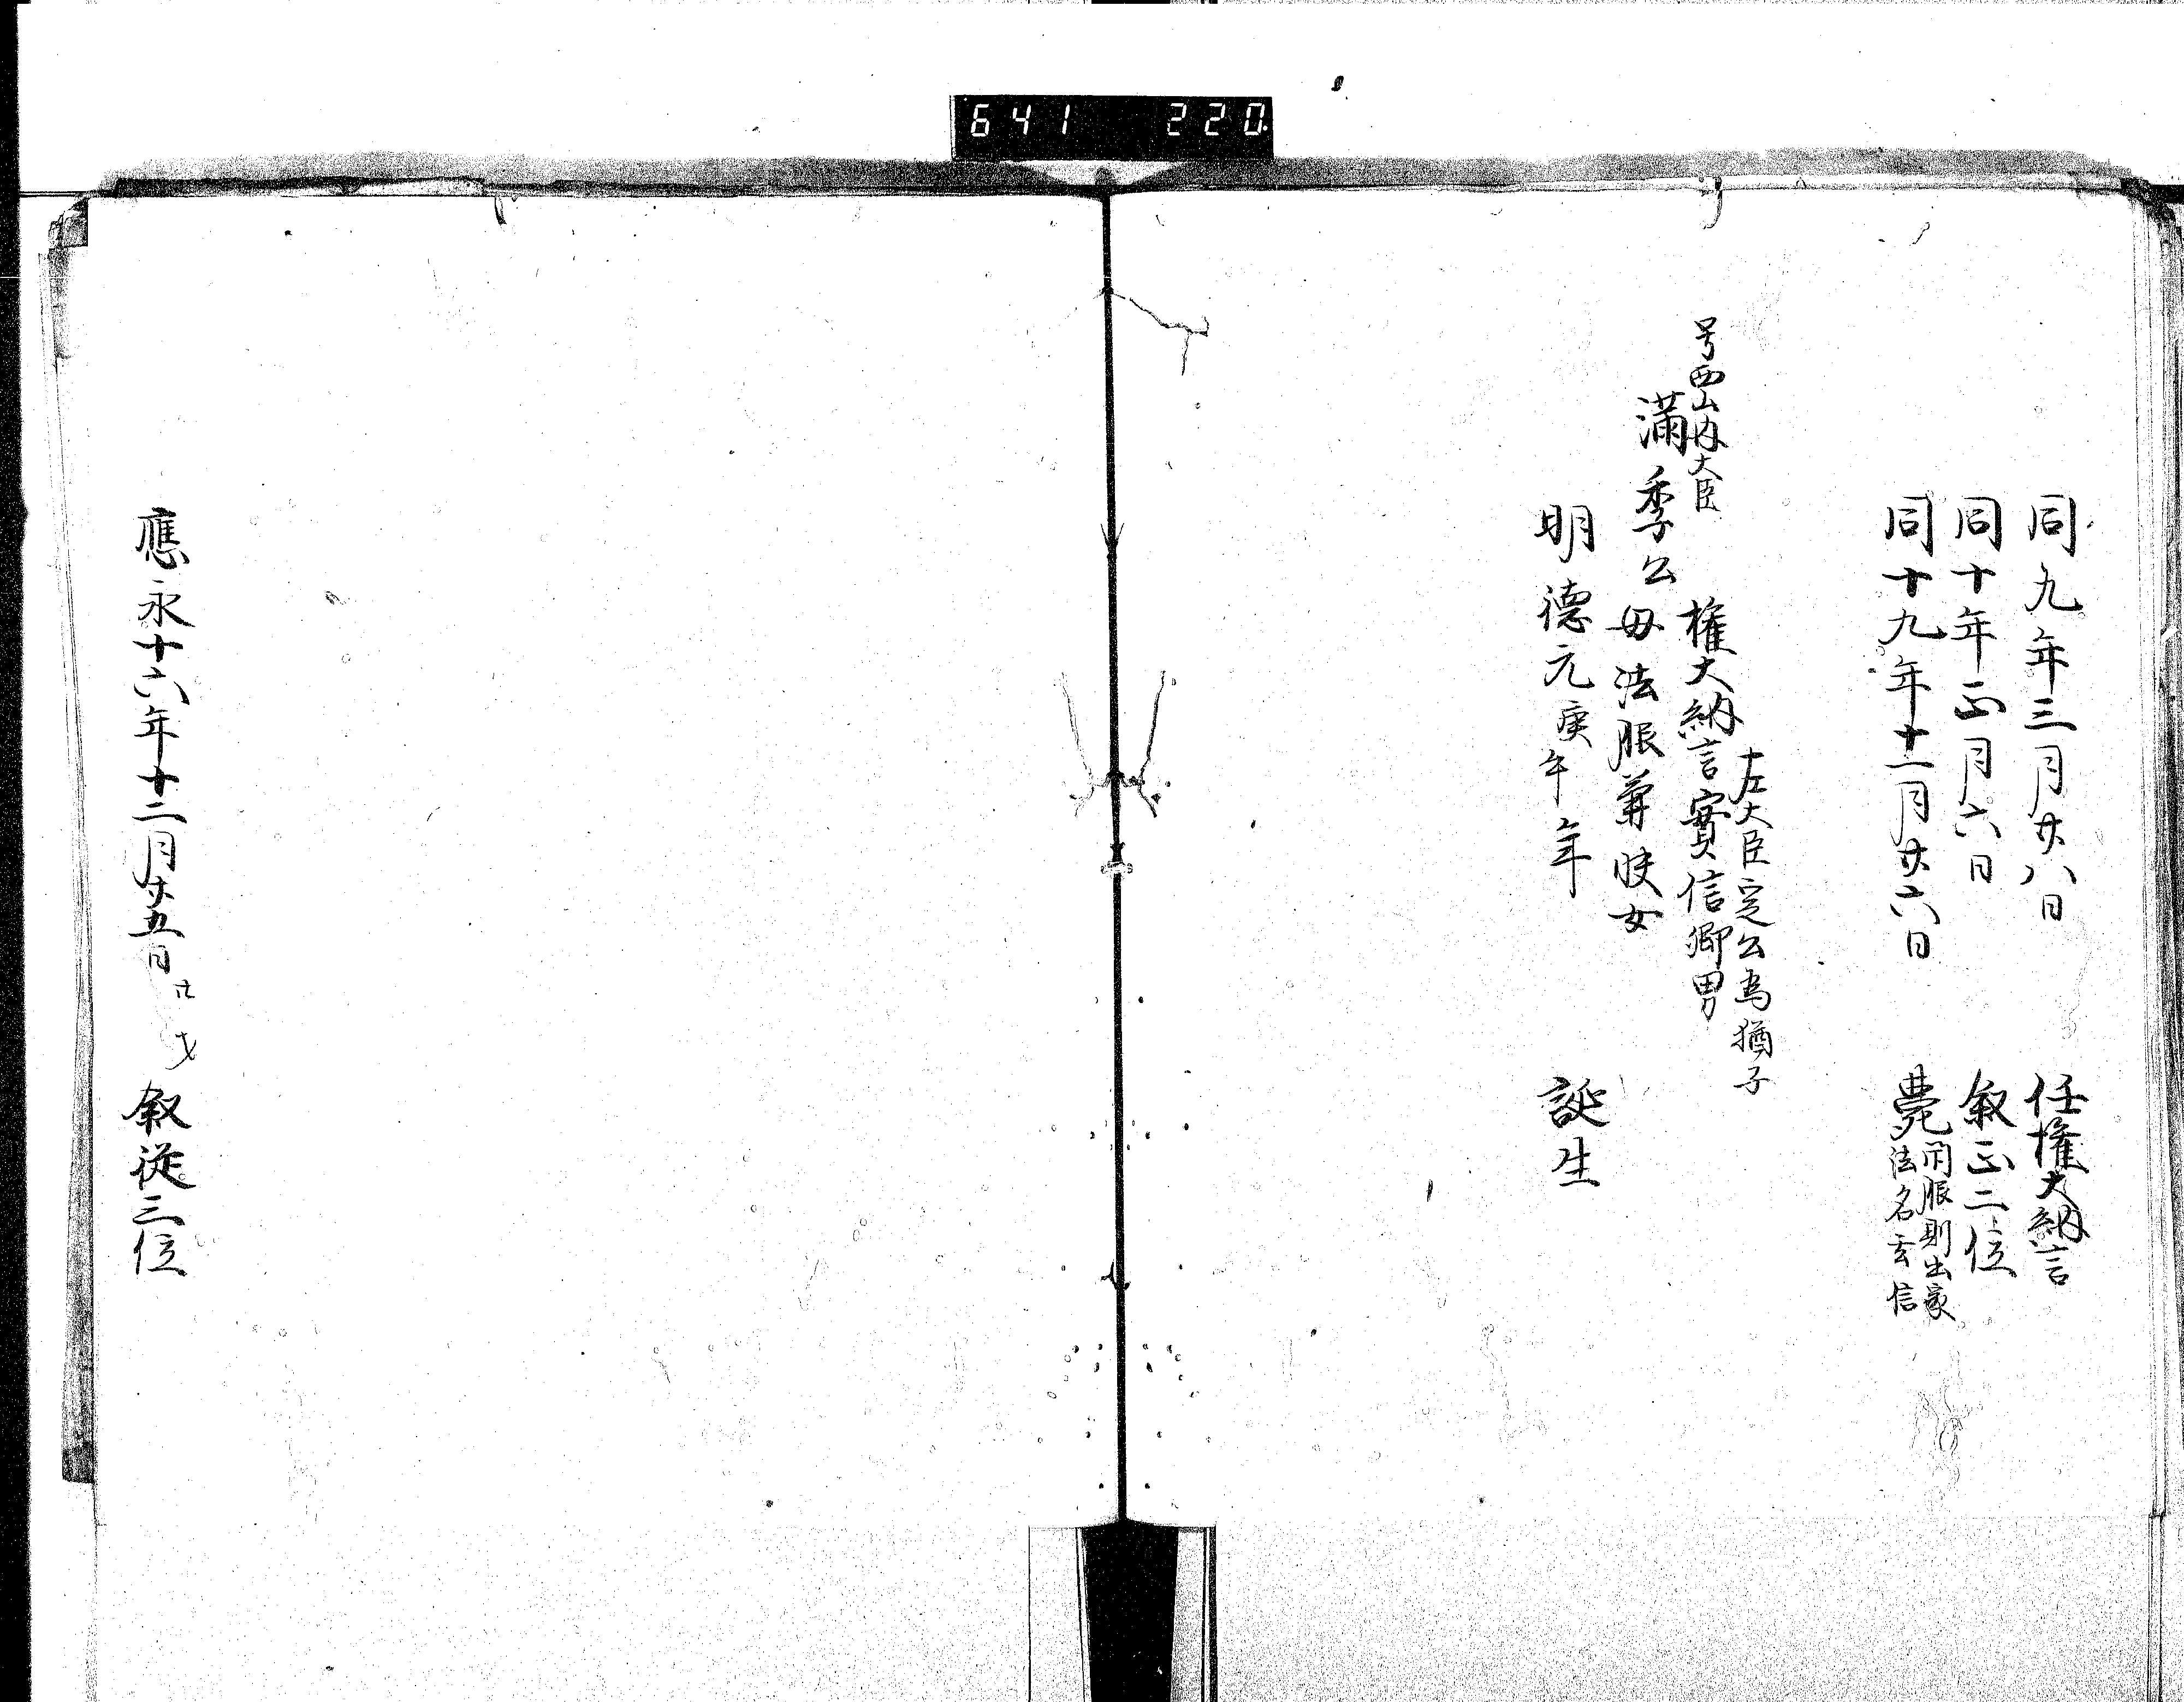 641 220
同九年三月廿八日 任權大納言
同十年正月六日 叙正二位
同十九年十一月廿六日 薨
閇眼則出家
法名玄信
左大臣実公為猶子
權大納言實信卿男
号西山内大臣
滿季公
母法眼兼快女
明德元庚午年 誕生
應永十六年十二月廿五日 叙從三位